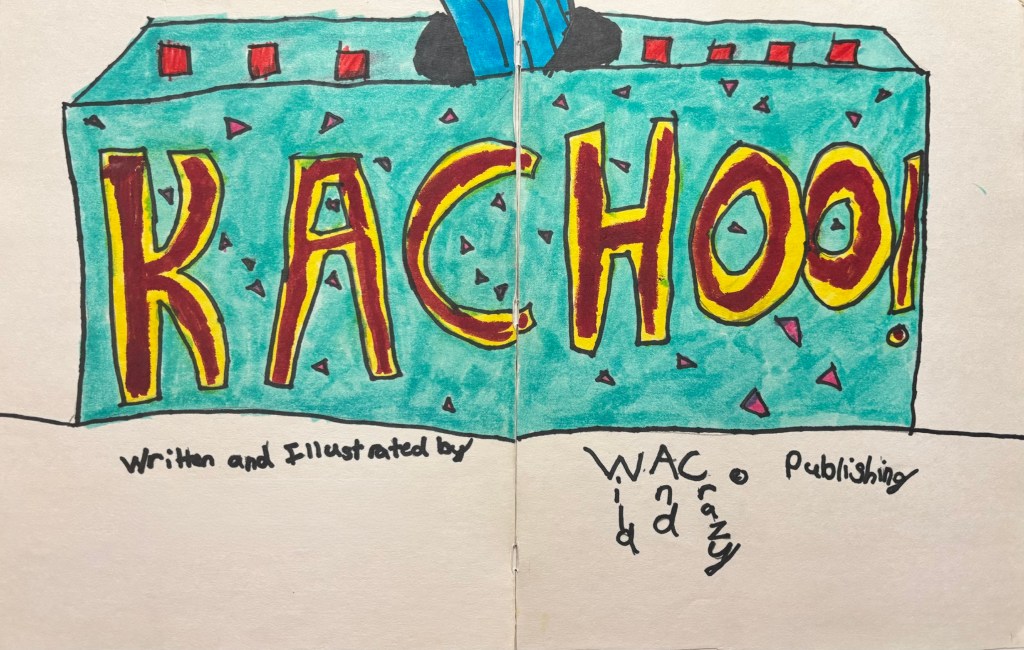 KACHOO!
Written and Illustrated by
W.A.C. Publishing
Wild And Crazy